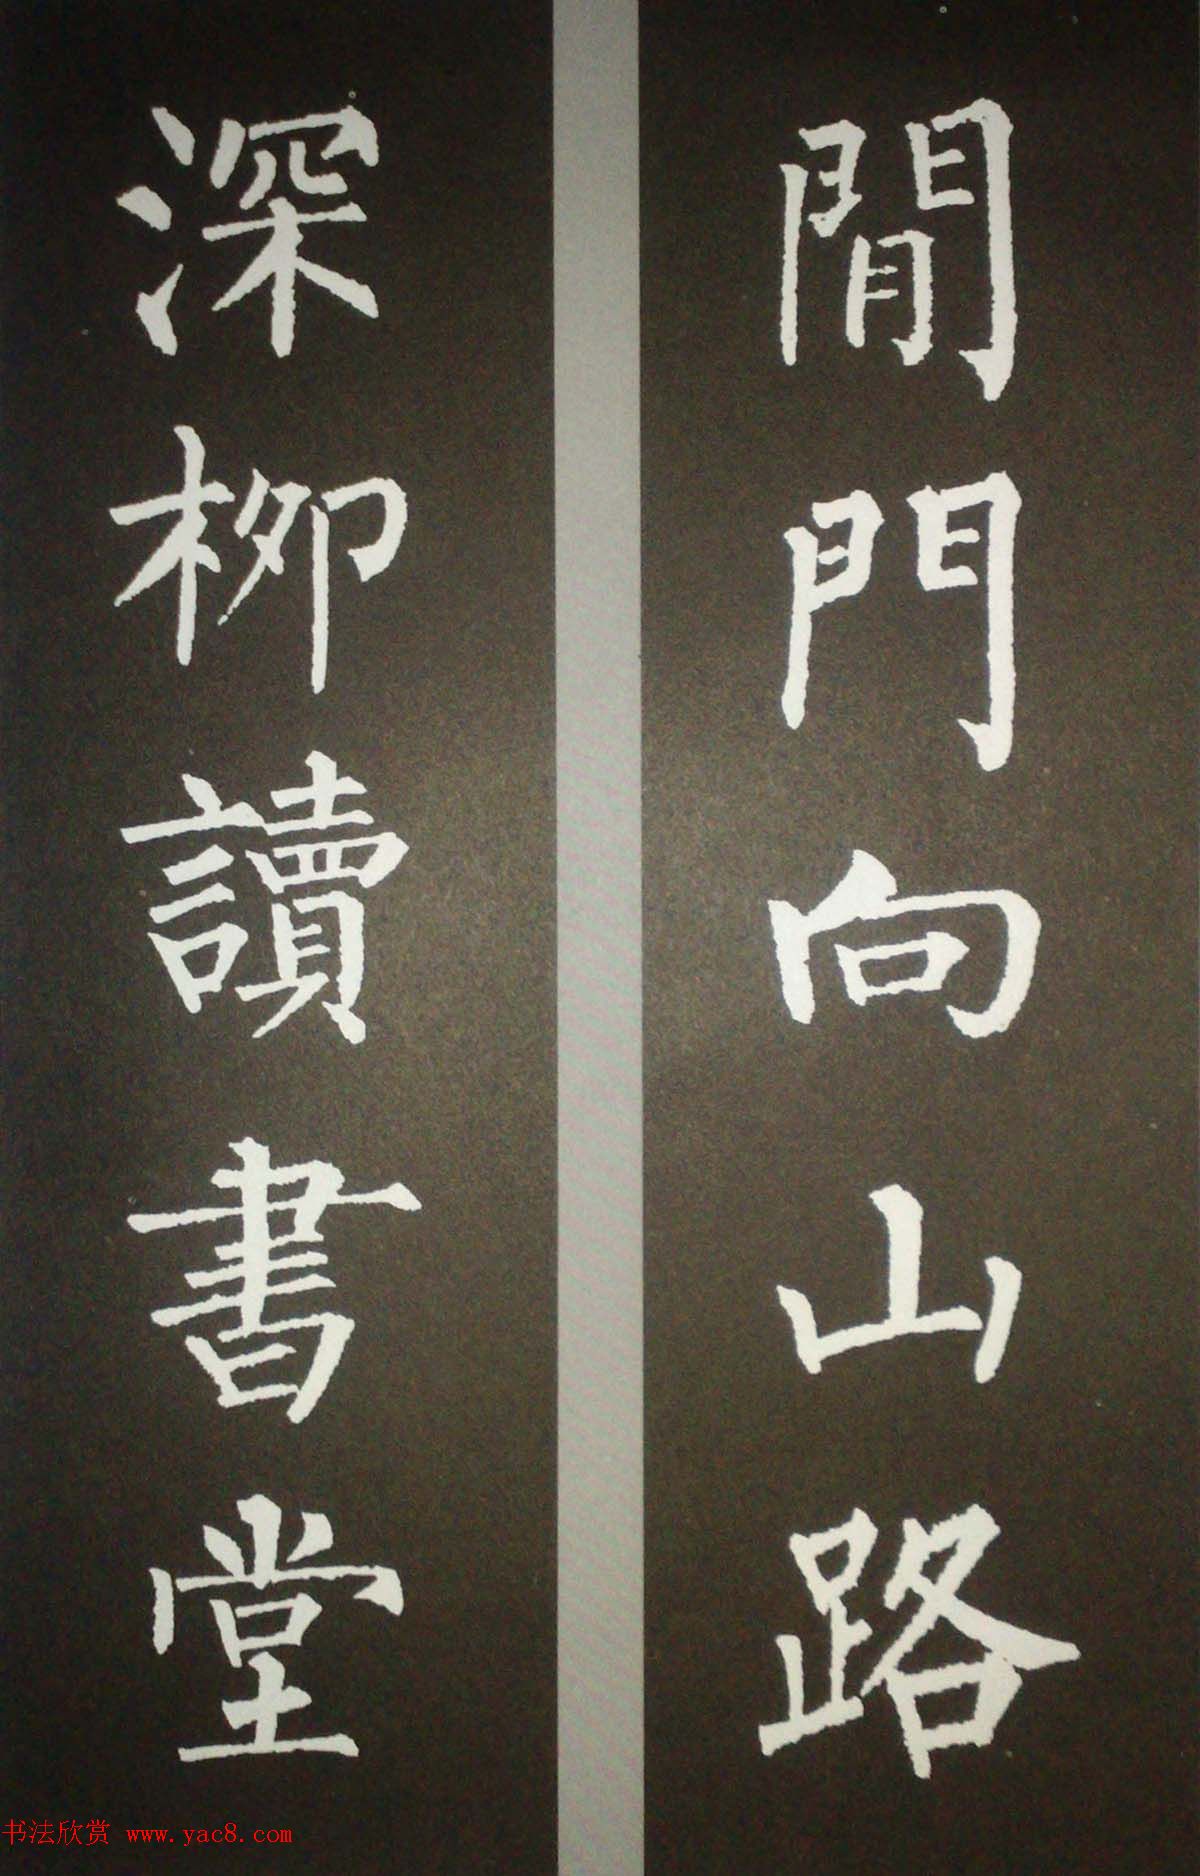 閒門向山路
深柳讀書堂
书法欣赏 www.yac8.com